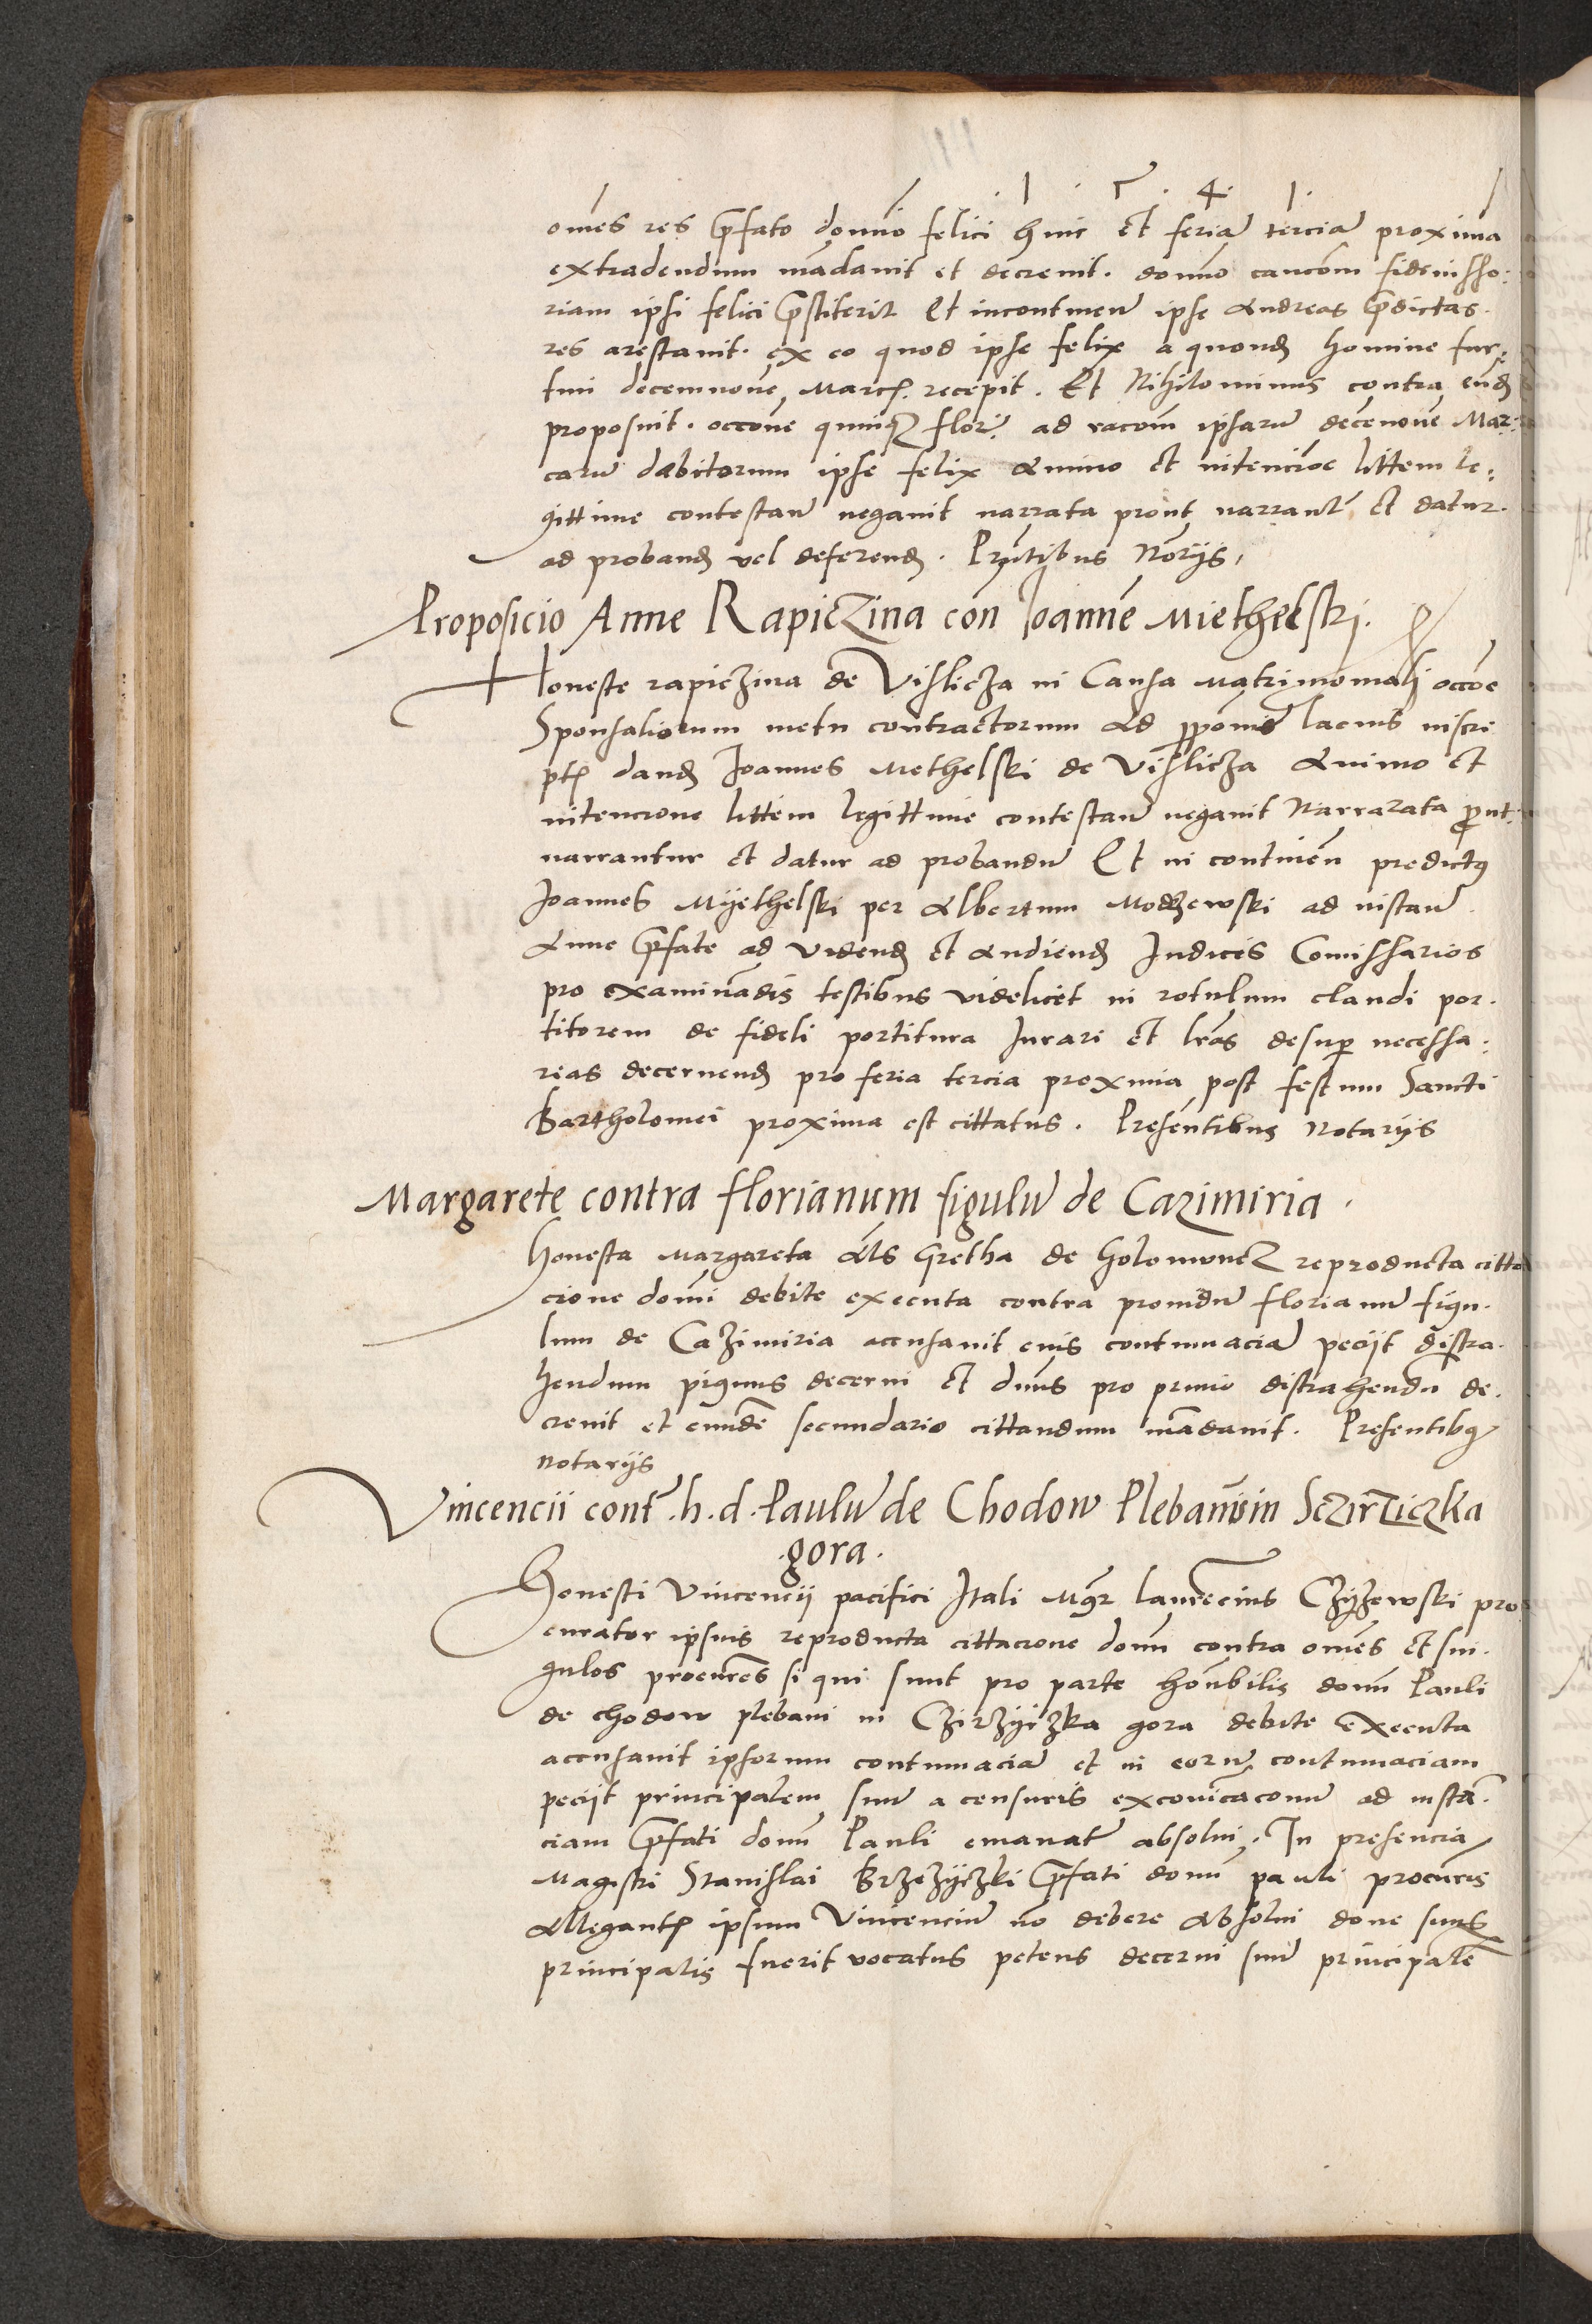 . 1 . 5 . 4 . 1 .
om̄es res p̄fato domīo felici hinc et feriā terciā proxima
extradendum mādauit et decreuit. domīo caucōm fideiusso:
riam ipsi felici p̄stiterit Et incontinen̄ ipse Andreas p̄dictas
res arestauit. ex eo quod ipse felix a quond̄ homine fur:
tiui decemnouē Marcȩ recepit. Et Nihilominus contra eūd̄
proposuit. occōne quinqȝ flor̄. ad racōm ipsarū decēnouē Mar:
carū dabitorum ipse felix Animo et intencīoe littem le:
gittime contestan̄ negauit narrata prout narrant̄ et datur.
ad proband̄ vel deferend̄. Pn̄tibus Nōrijs,
Proposicio Anne Rapiczina con̄ Joannē Miethelski.
Honeste rapiczina de Vislicza in Causa Matrimōniali occōe
Sponsaliorum metu contractorum Ad p̄pōnis̄ lacius inscri
ptȩ dand̄ Joannes Methelski de Vislicza Animo et
intencione littem legittime contestan̄ negauit Narrarata p̄out.
narrantur et datur ad probandū Et in continēn predictꝰ
Joannes Myethelski per Albertum Modzewski ad instan̄
Anne p̄fate ad vidend̄ et Audiend̄ Judices Comissarios
pro examinādis testibus videlicet in rotulum claudi por.
titorem de fideli portitura Jurari et lr̄as desup̄ necessa:
reas decernend̄ pro feria tercia proxima post festum Sancti
Bartholomei proxima est cittatus. Presentibus Notarijs
Margarete contra florianum figulū de Cazimiria.
Honesta Margareta Al̄s Gretha de Holomuncz reproducta citta
cione domī debite executa contra prouidū florianū figu.
lum de Cazimiria accusauit eius contumaciā peciit distra.
hendum pignus decerni et dn̄us pro primo distrahendū de.
creuit et eundē secundario cittandum mādauit. Presentibꝰ
notarijs
Vincencii cont̄. h. d. Paulū de Chodow Plebanūm in Sczirziczka
.gora.
Honesti Vincencij pacifici Itali Mgr̄ laurēcius Czyzewski pro
curator ipsius reproducta cittacione domī contra om̄es et sin.
gulos procur̄es si qui sunt pro parte honōbilis domī Pauli
de chodow plebani in Czirzyiczka gora debite executa
accusauit ipsorum contumaciā et in eorū contumaciam
peciit principalem suū a censuris excōnicacōnū ad instā.
ciam p̄fati domī Pauli emanat̄ absolui. In presencia
Magistri Stanislai Brzezyczki p̄fati domī pauli procur̄is
Allegantȩ ipsum Vincenciū nō debere absolui done suus
principalis fuerit vocatus petens decerni suū principalē